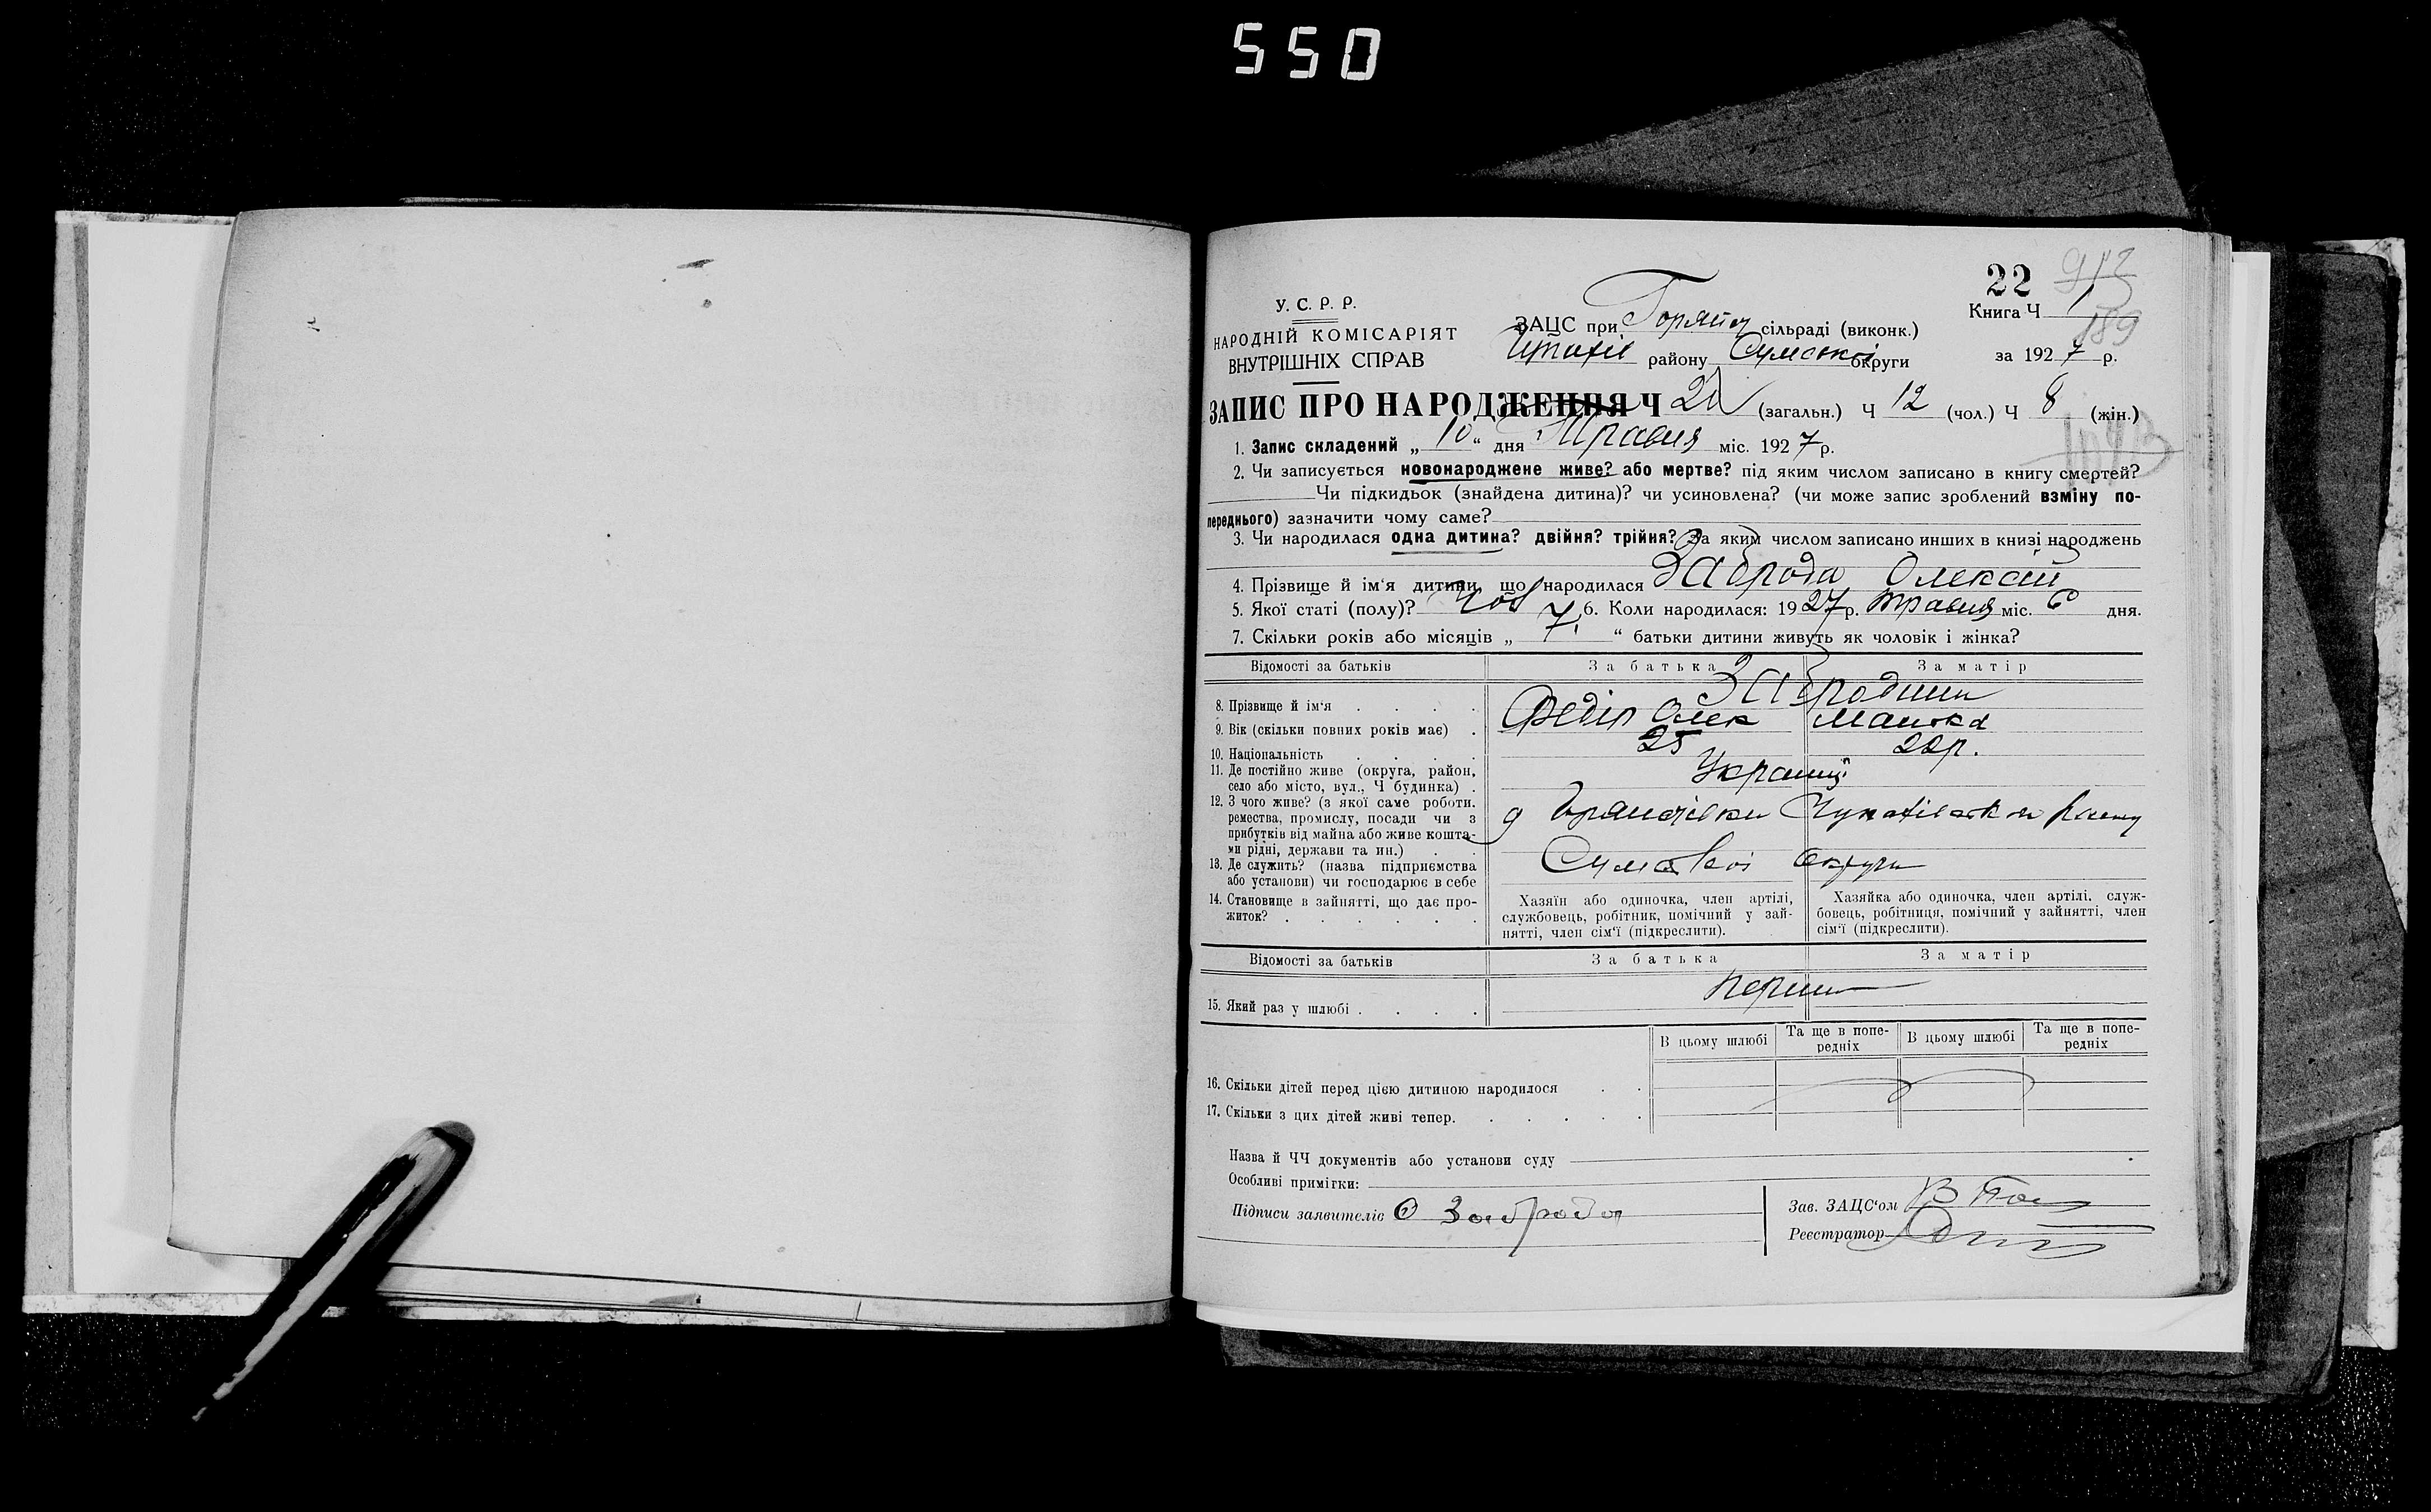 550
22
У. С. Р. Р.
НАРОДНІЙ КОМІСАРІЯТ
ВНУТРІШНІХ СПРАВ
ЗАЦС при сільраді (виконк.)
району Сумської округи
Книга Ч 1
189
за 1927 р.
ЗАПИС ПРО НАРОДЖЕННЯ Ч (загальн.) Ч 12 (чол.) Ч 8 (жін.)
1. Запис складений „10“ дня Травня міс. 1927 р.
2. Чи записується новонароджене живе? або мертве? під яким числом записано в книгу смертей?
Чи підкидьок (знайдена дитина)? чи усиновлена? (чи може запис зроблений взміну по-
переднього) зазначити чому саме?
3. Чи народилася одна дитина? двійня? трійня? За яким числом записано инших в книзі народжень
4. Прізвище й ім‘я дитини, що народилася Заброда Олексій
5. Якої статі (полу)? Чол 6. Коли народилася: 1927 р. травня міс. 6 дня.
7. Скільки років або місяців „ 7 “ батьки дитини живуть як чоловік і жінка?
Відомості за батьків За батька За матір
8. Прізвище й ім‘я
Федір Олек
9. Вік (скільки повних років має)
25 22р.
10. Національність
Українці
11. Де постійно живе (округа, район,
село або місто, вул., Ч будинка)
12. З чого живе? (з якої саме роботи.
ремества, промислу, посади чи з
прибутків від майна або живе кошта-
ми рідні, держави та ин.)
Сумської округи
13. Де служить? (назва підприємства
або установи) чи господарює в себе
14. Становище в зайнятті, що дає про-
житок?
Хазяїн або одиночка, член артілі,
службовець, робітник, помічний у зай-
нятті, член сім‘ї (підкреслити).
Хазяйка або одиночка, член артілі, служ-
бовець, робітниця, помічний у зайнятті, член
сім‘ї (підкреслити).
Відомості за батьків За батька За матір
15. Який раз у шлюбі
В цьому шлюбі Та ще в попе-
редніх В цьому шлюбі Та ще в попе-
редніх
16. Скільки дітей перед цією дитиною народилося
17. Скільки з цих дітей живі тепер.
Назва й ЧЧ документів або установи суду
Особливі примітки:
Підписи заявителів Заброда
Зав. ЗАЦС‘ом
Реєстратор